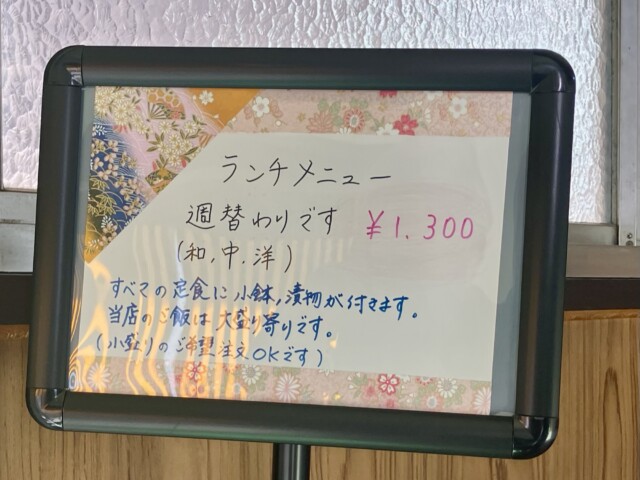 ランチメニュー
週替わりです ¥1.300
(和,中.洋)
すべての定食に小鉢,漬物が付きます。
当店のご飯は大盛り寄りです。
(小盛りのご希望注文OKです)